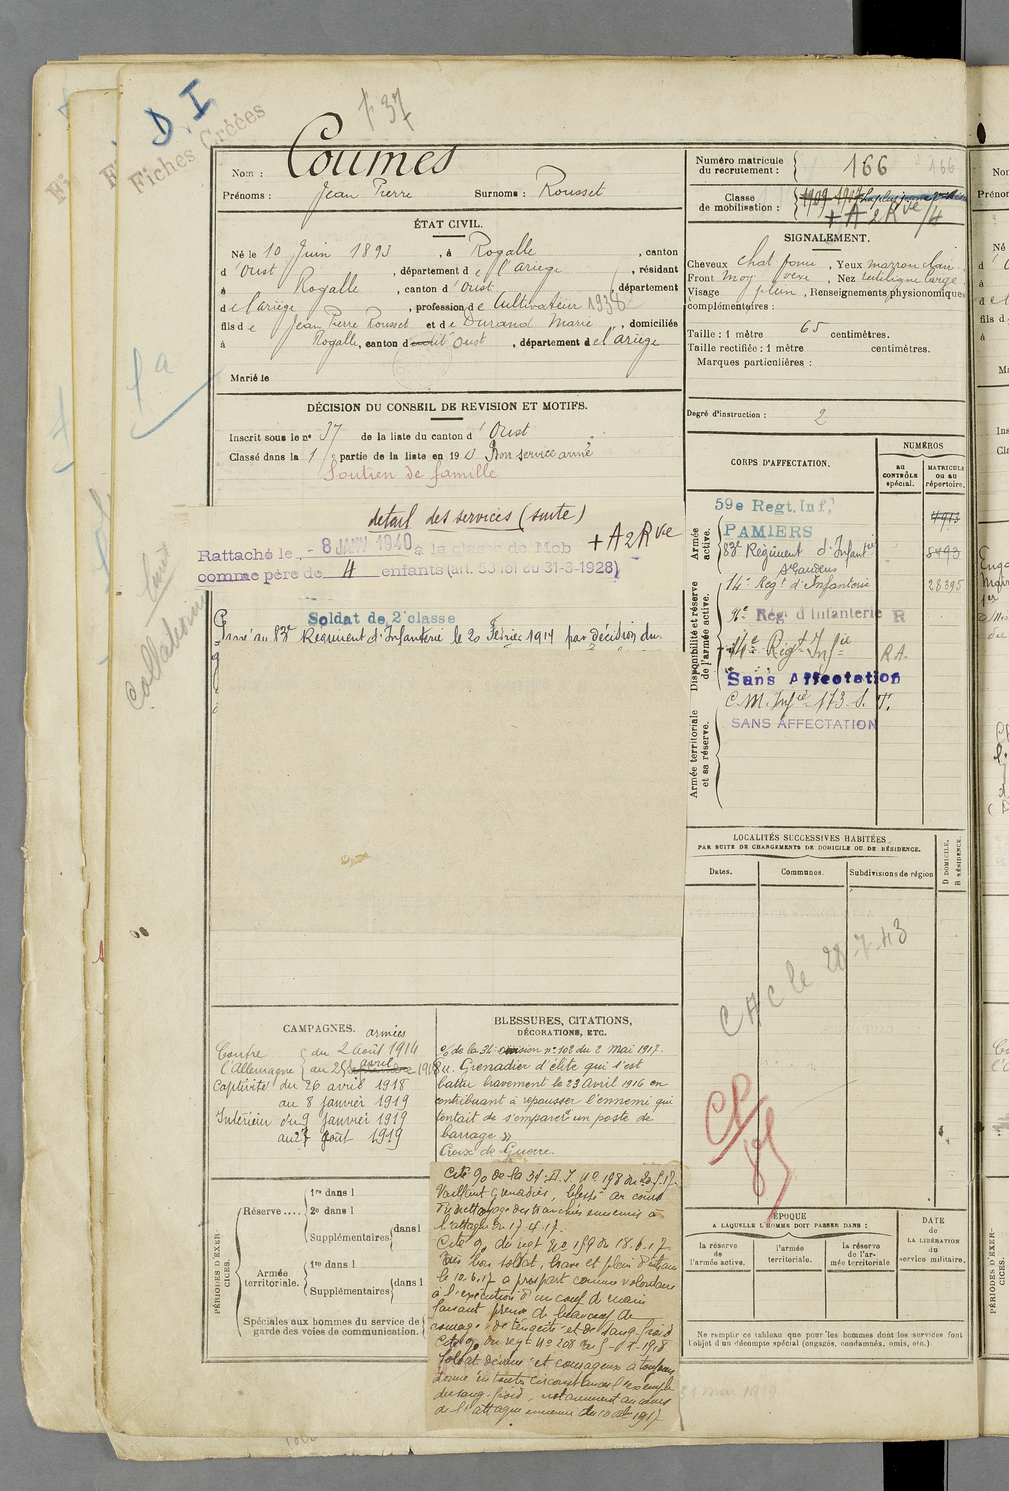 D.I
Fiches Créées
137
Nom : Coumes
Prénoms : Jean Pierre Surnoms : Rousset
Numéro matricule
du recrutement : 166 166
Classe
de mobilisation : 1909 1907
+ A 2 Rve /4
ÉTAT CIVIL.
Né le 10 Juin 1893, à Rogalle, canton
d'Oust, département de l'Ariège, résidant
à Rogalle, canton d'Oust, département
de l'Ariège, profession de Cultivateur 1938
fils de Jean Pierre Rousset et de Durand Marie, domiciliés
à Rogalle, canton dudit Oust, département de l'Ariège
Marié le
SIGNALEMENT.
Cheveux chat foncé, Yeux marron clair
Front moy vert, Nez rectiligne large
Visage plein, Renseignements physionomiques
complémentaires :
Taille : 1 mètre 65 centimètres.
Taille rectifiée : 1 mètre centimètres.
Marques particulières :
Degré d'instruction : 2
1a
DÉCISION DU CONSEIL DE REVISION ET MOTIFS.
Inscrit sous le n° 37 de la liste du canton d'Oust
Classé dans la 1re partie de la liste en 19 Bon service armé
Soutien de famille
détail des services (suite)
Rattaché le - 8 JANV 1940 à la classe de Mob + A 2 Rve
comme père de 4 enfants (art. 58 loi du 31-3-1928)
Soldat de 2e classe
Passé au 83e Régiment d'Infanterie le 20 Février 1914 par décision du
CORPS D'AFFECTATION.
NUMÉROS
au
CONTRÔLE
spécial.
MATRICULE
ou au
répertoire.
Armée
active.
59e Regt. Inf,
PAMIERS
83e Régiment d'Infantie 8493
St Gaudens
Disponibilité et réserve
de l'armée active.
14e Regt d'Infanterie 28395
Régt d'Infanterie R
14e Régt Infie R.A.
Sans Affectation
C.M. Infie 173 S.T.
SANS AFFECTATION
Armée territoriale
et sa réserve.
LOCALITÉS SUCCESSIVES HABITÉES
PAR SUITE DE CHANGEMENTS DE DOMICILE OU DE RÉSIDENCE.
Dates.
Communes.
Subdivisions de région
D DOMICILE.
R RÉSIDENCE.
CAC le 28-7-43
CAMPAGNES.
armées
Contre du 2 Août 1914
l'Allemagne au 25 avril 1918
Captivité du 26 avril 1918
au 8 janvier 1919
Intérieur du 9 Janvier 1919
au 27 août 1919
BLESSURES, CITATIONS,
DÉCORATIONS, ETC.
o/ de la 34e division n° 102 du 2 Mai 1917.
Grenadier d'élite qui s'est
battu bravement le 23 Avril 1916 en
contribuant à repousser l'ennemi qui
tentait de s'emparer d'un poste de
barrage »
Croix de Guerre.
Cité o/o de la 34e D.I. N° 198 du 20-5-17
Vaillant grenadier, blessé au cours
du nettoyage des tranchées ennemies à
l'attaque du 17.4.17.
Cité o/o du regt N° 159 du 18.6.17
Très bon soldat, brave et plein d'élan
le 10.6.17 a pris part comme volontaire
à l'exécution d'un coup de main
faisant preuve de beaucoup de
courage, de ténacité et de sang froid
Cité o/o du regt N° 208 du
Soldat dévoué et courageux a toujours
donné en toutes circonstances l'exemple
du sang-froid, notamment au cours
de l'attaque ennemie du 10 1917
PÉRIODES D'EXER-
CICES.
Réserve.... 1re dans l
2e dans l
Supplémentaires dans l
Armée
territoriale. 1re dans l
Supplémentaires dans l
Spéciales aux hommes du service de
garde des voies de communication.
ÉPOQUE
A LAQUELLE L'HOMME DOIT PASSER DANS :
la réserve
de
l'armée active.
l'armée
territoriale.
la réserve
de l'ar-
mée territoriale
DATE
de
LA LIBÉRATION
du
service militaire.
Ne remplir ce tableau que pour les hommes dont les services font
l'objet d'un décompte spécial (engagés, condamnés, omis, etc.)